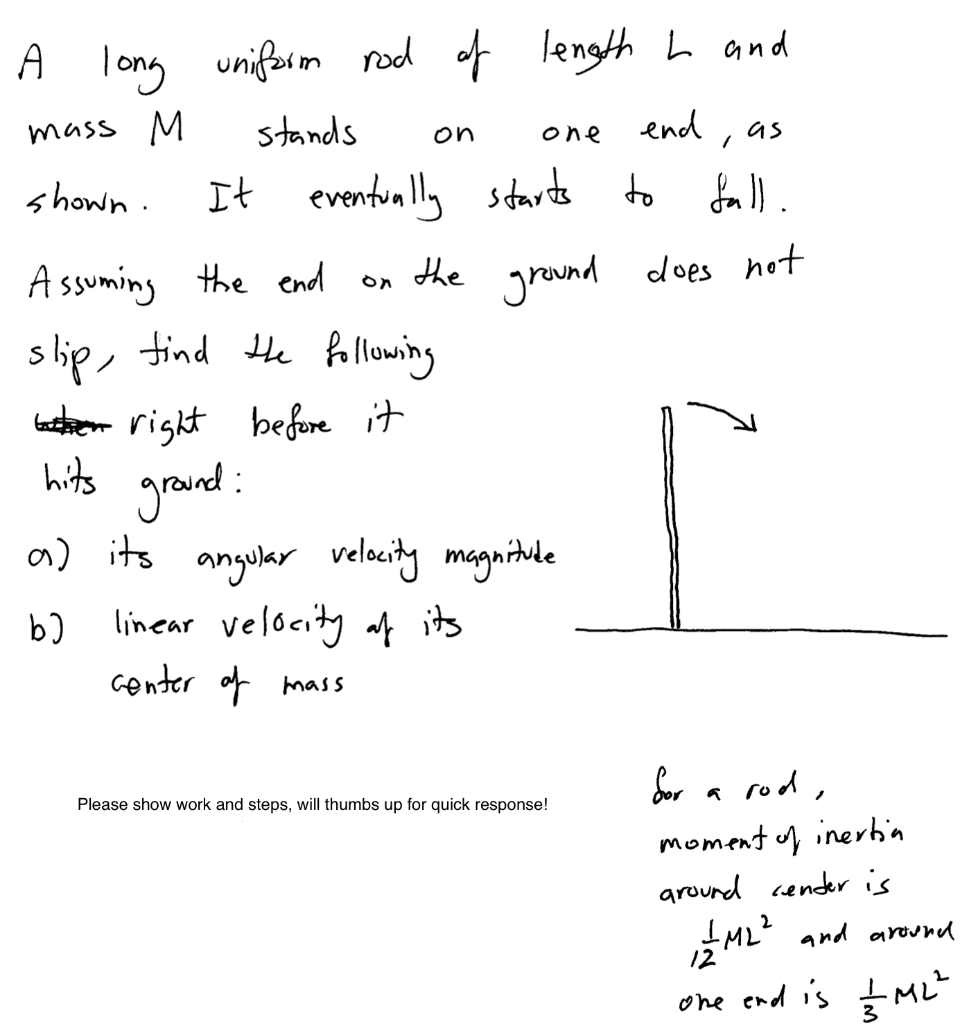 A long uniform rod of length L and
mass M stands on one end, as
shown. It eventually starts to fall.
Assuming the end on the ground does not
slip, find the following
when right before it
hits ground:
a) its angular velocity magnitude
b) linear velocity of its
center of mass
Please show work and steps, will thumbs up for quick response!
for a rod,
moment of inertia
around center is
1/12 ML² and around
one end is 1/3 ML²